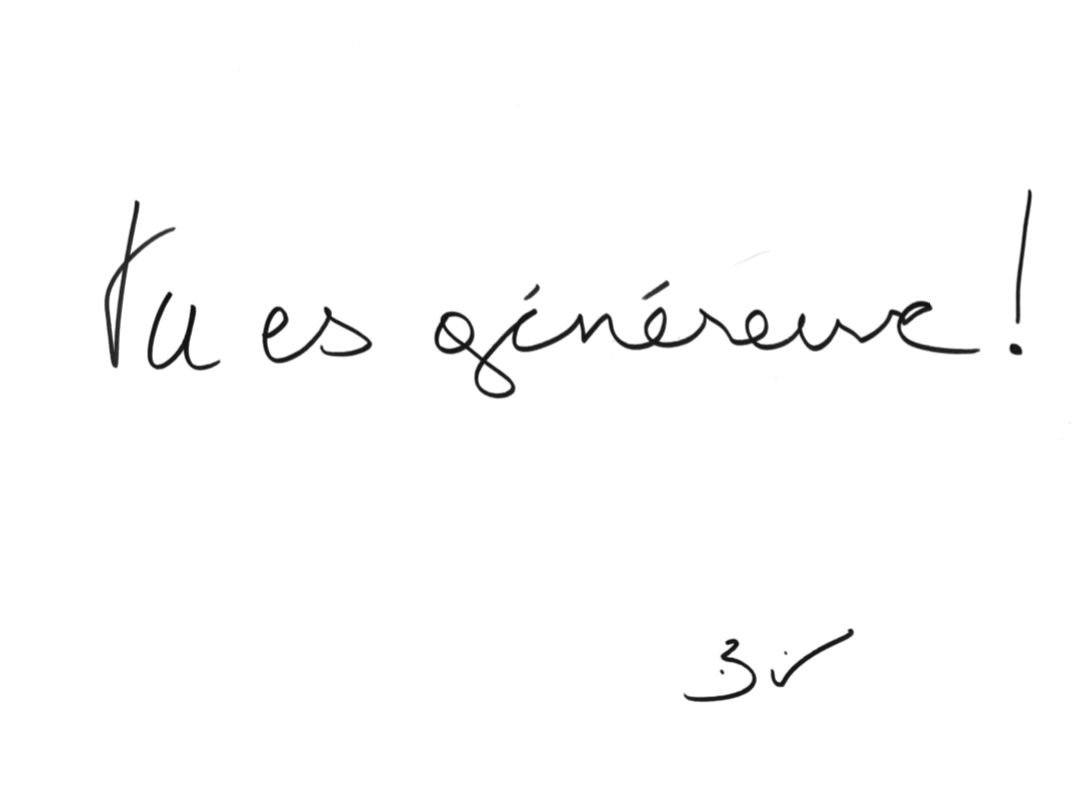 Tu es généreuse !